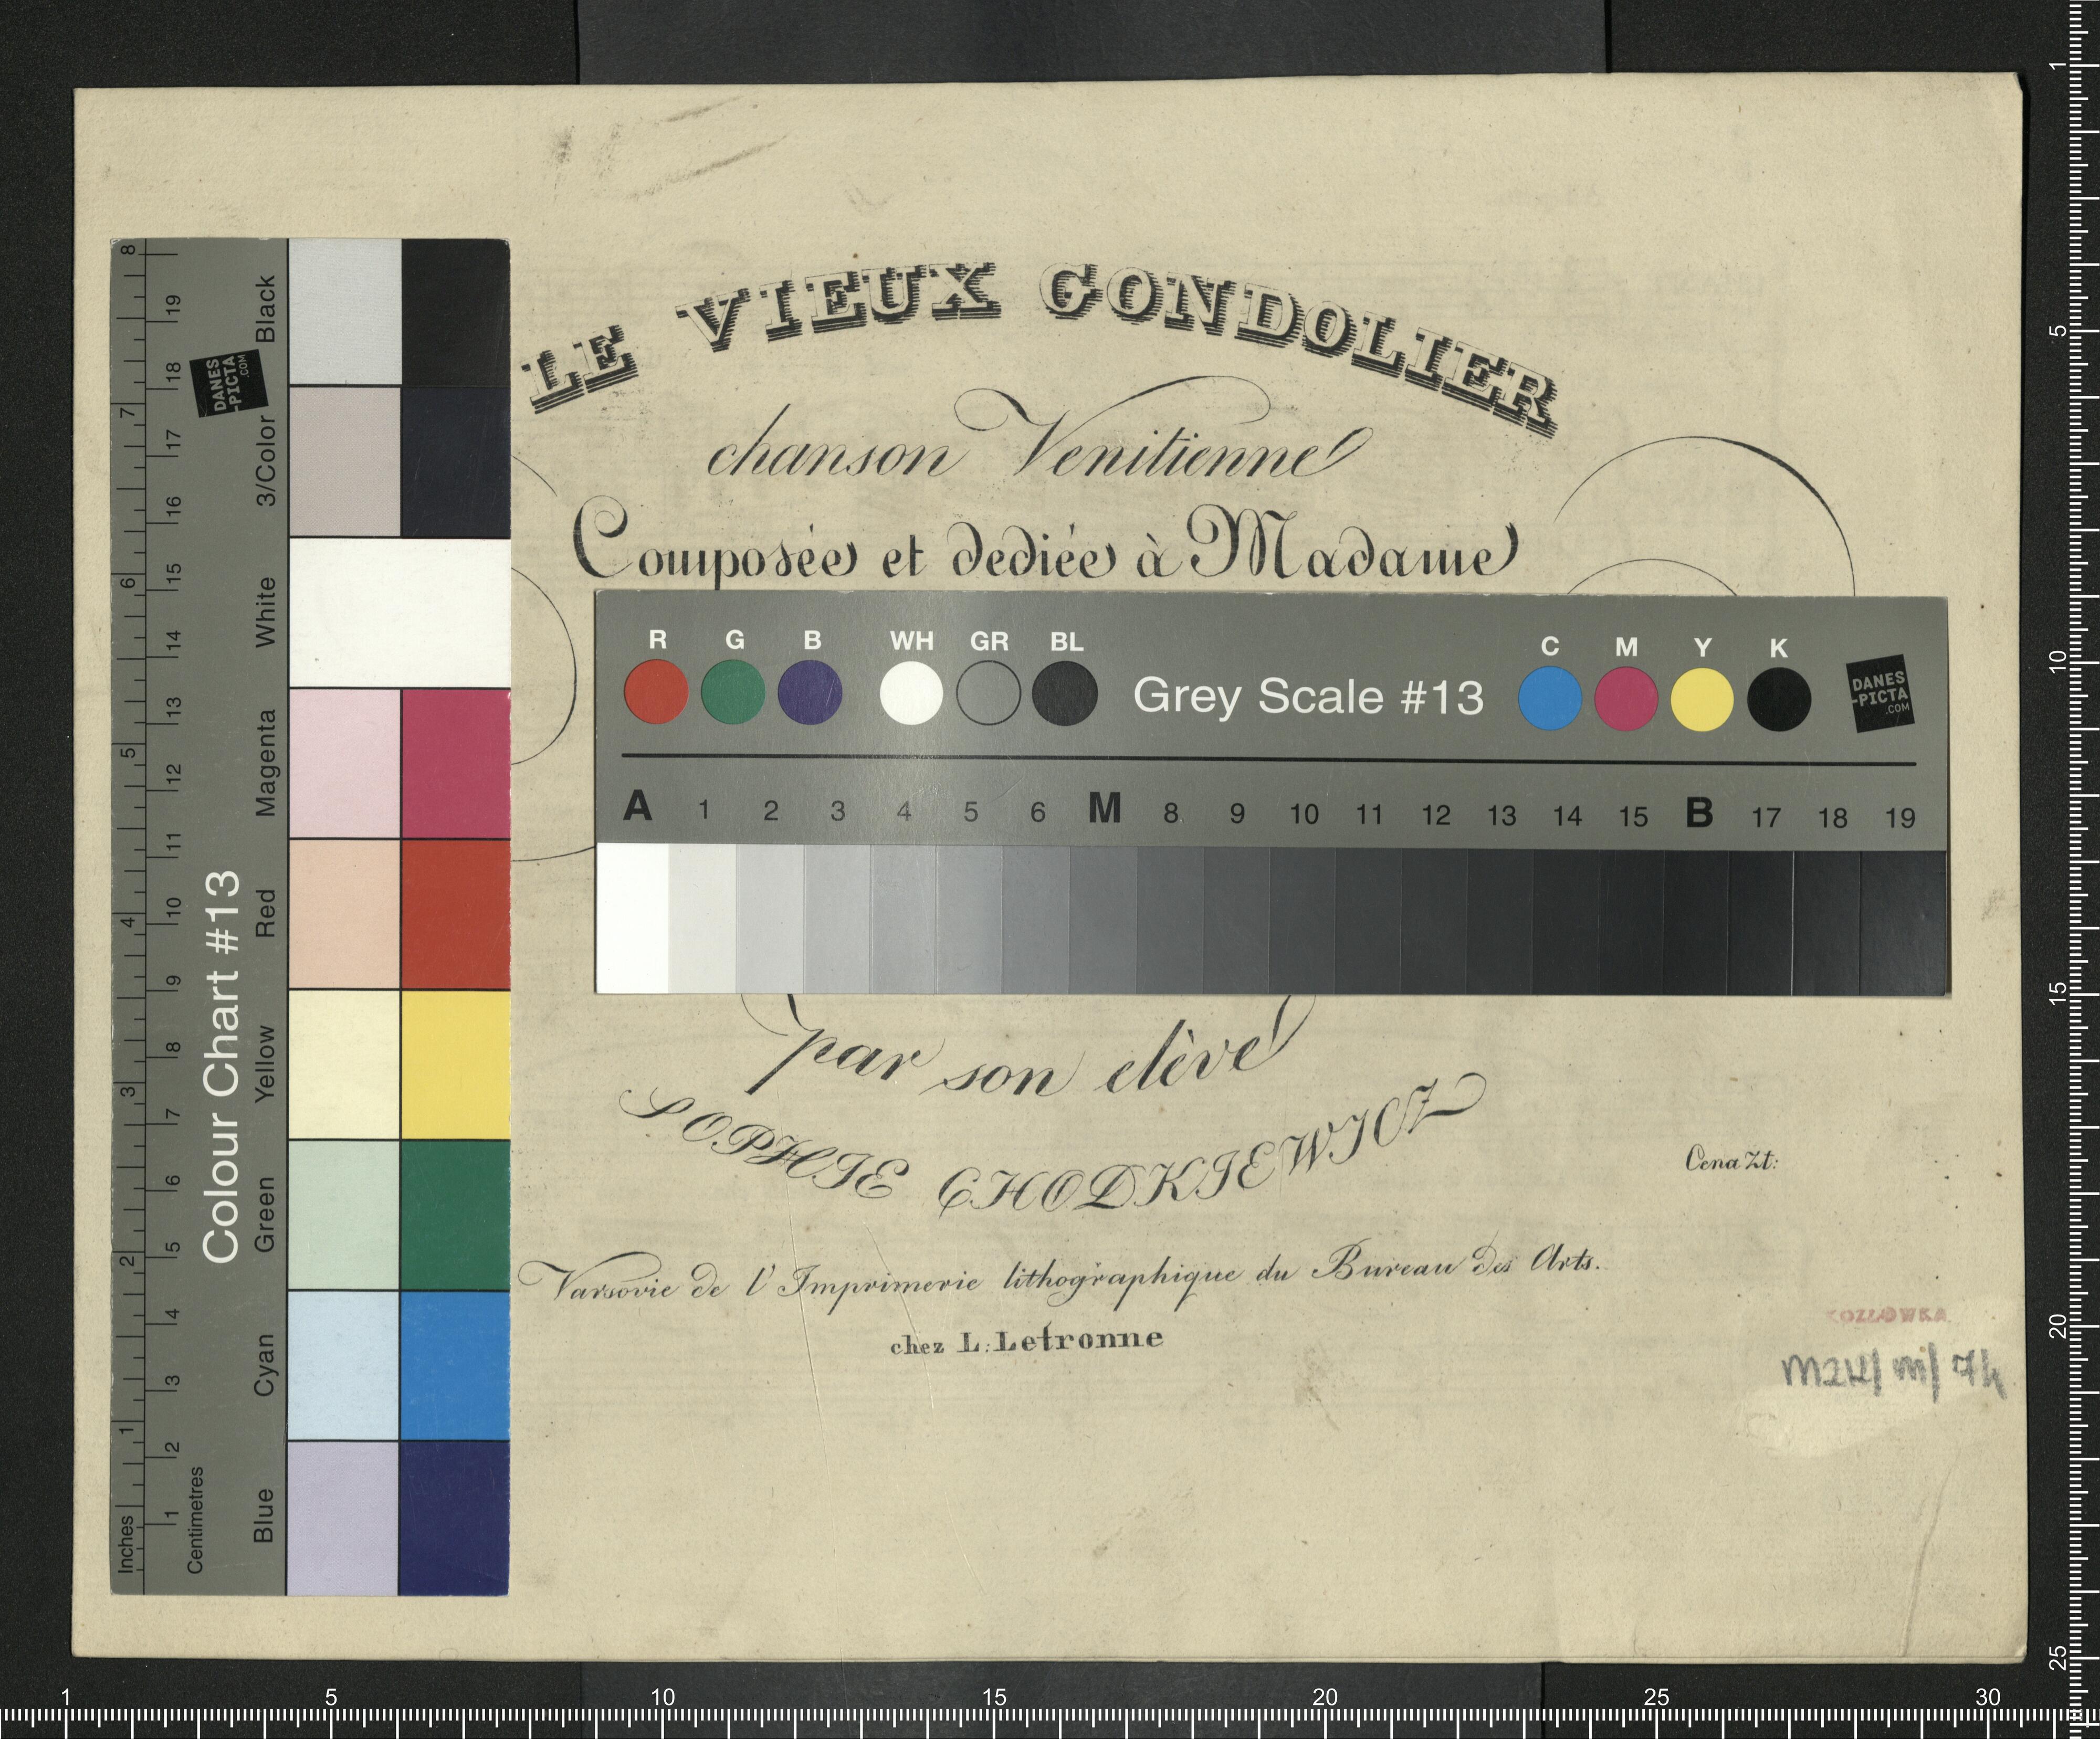 LE VIEUX GONDOLIER
chanson Venitienne
Composée et dediée à Madame
R G B WH GR BL Grey Scale #13 C M Y K
DANES
-PICTA
.COM
A 1 2 3 4 5 6 M 8 9 10 11 12 13 14 15 B 17 18 19
par son elève
SOPHIE CHODKIEWICZ
Cena Zt:
Varsovie de l'Imprimerie lithographique du Bureau des Arts.
chez L. Letronne
KOZŁÓWKA
Colour Chart #13
DANES
-PICTA
.COM
Blue Cyan Green Yellow Red Magenta White 3/Color Black
Inches 1 2 3 4 5 6 7 8
Centimetres 1 2 3 4 5 6 7 8 9 10 11 12 13 14 15 16 17 18 19
1 5 10 15 20 25 30
1 5 10 15 20 25